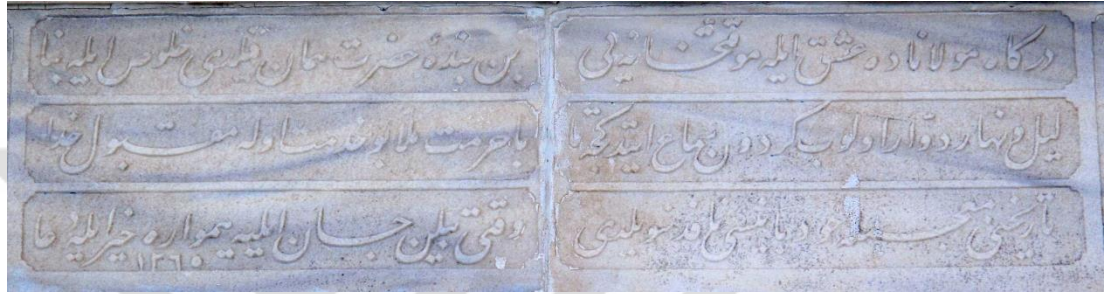 درگاه مولاناده عشق ایله موقتخانه یی
بن بندهٔ حضرت همان قیلدی خلوص ایله بنا
لیل و نهار دوار اولوب گردون سماع ایتدکجه تا
با حرمت ملا بو خدمت اوله مقبول خدا
تاریخنی معجمله سویلدی
وقتی بیلن جان ایلیه همواره خیر ایله دعا
١٢٦٠